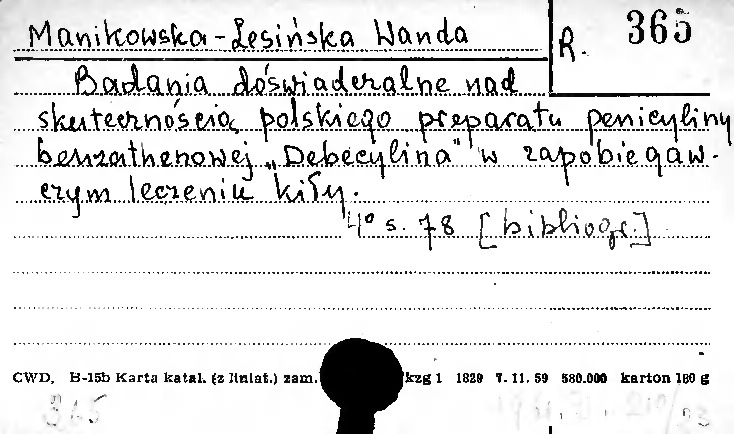 Manikowska-Lesińska Wanda
R. 365
Badania doświadczalne nad
skutecznością polskiego preparatu penicyliny
benzathenowej „Debecylina" w zapobiegaw-
czym leczeniu kiły.
4° s. 78 [bibliogr.]
CWD, B-15b Karta katal. (z liniat.) zam. kzg 1 1829 7. 11. 59 580.000 karton 180 g
365